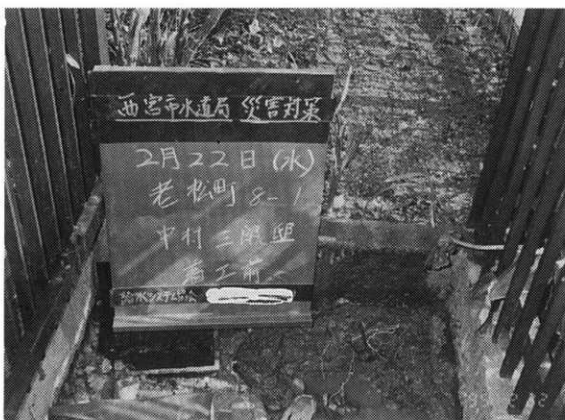 西宮市水道局 災害対策
2月22日(水)
老松町 8-1
中村三郎邸
着工前